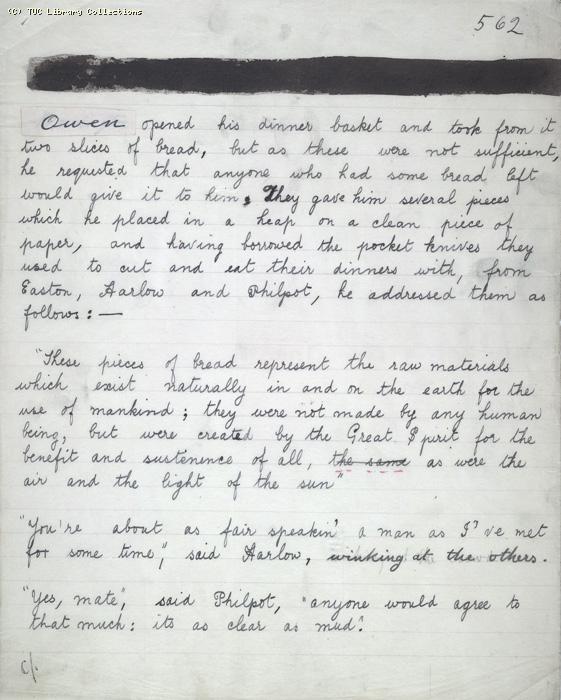 (C) TUC Library Collections
562
Owen opened his dinner basket and took from it
two slices of bread, but as these were not sufficient,
he requested that anyone who had some bread left
would give it to him, They gave him several pieces
which he placed in a heap on a clean piece of
paper, and having borrowed the pocket knives they
used to cut and eat their dinners with, from
Easton, Harlow and Philpot, he addressed them as
follows: —
"These pieces of bread represent the raw materials
which exist naturally in and on the earth for the
use of mankind; they were not made by any human
being, but were created by the Great Spirit for the
benefit and sustenence of all, the same as were the
air and the light of the sun"
"You're about as fair speakin' a man as I've met
for some time", said Harlow, winking at the others.
"Yes, mate", said Philpot, "anyone would agree to
that much: its as clear as mud".